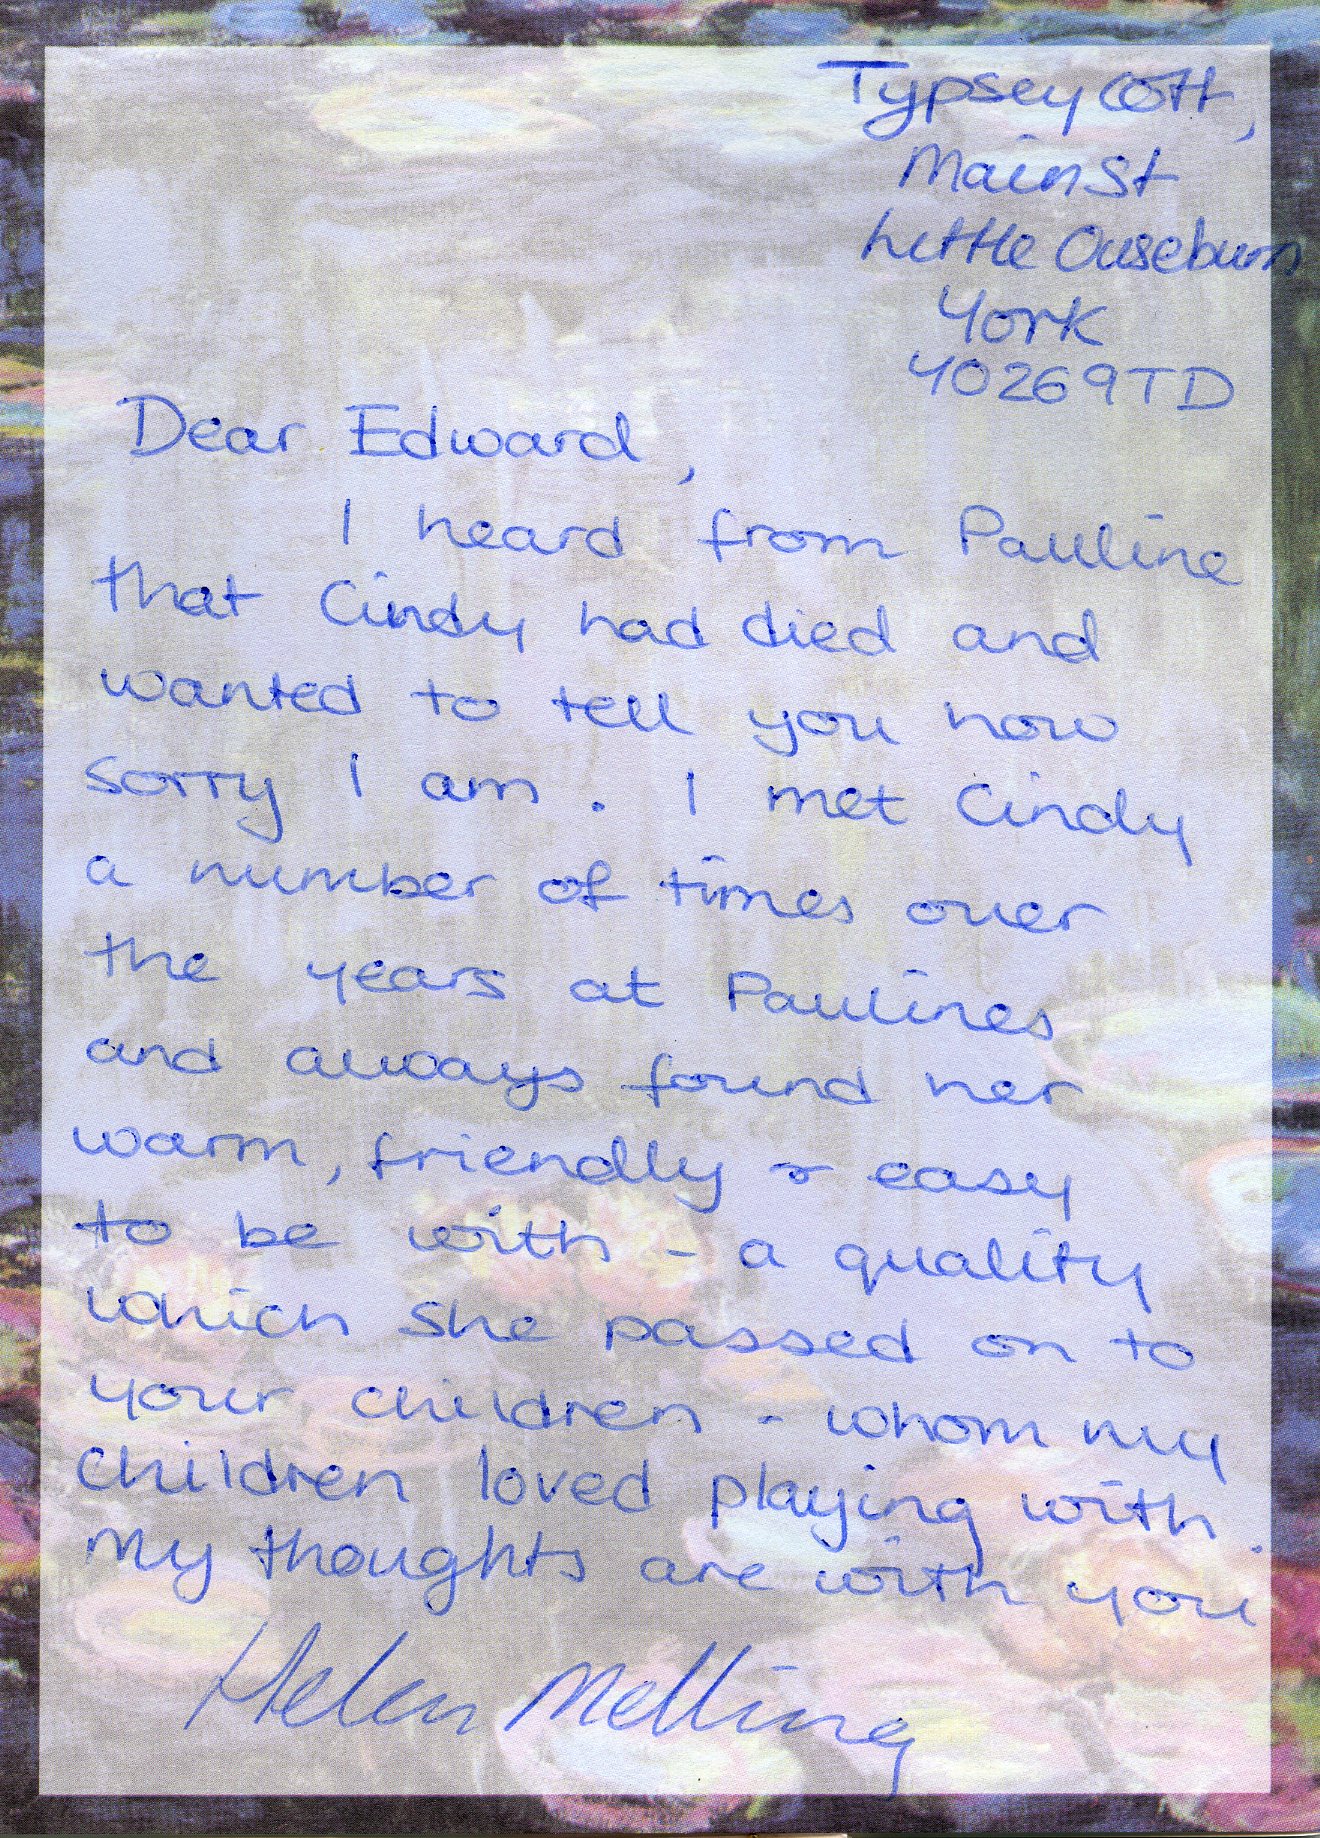 Typsey Cott,
Main St
Little Ouseburn
York
YO26 9TD
Dear Edward,
I heard from Pauline
that Cindy had died and
wanted to tell you how
sorry I am. I met Cindy
a number of times over
the years at Paulines
and always found her
warm, friendly & easy
to be with - a quality
which she passed on to
your children - whom my
children loved playing with.
My thoughts are with you
Helen Melling